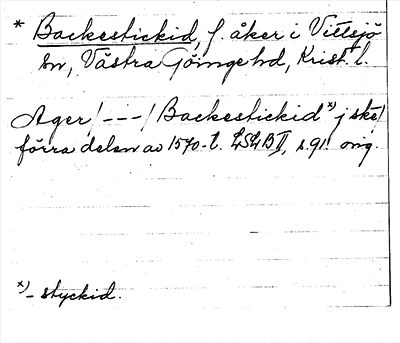 * Backestickid, f. åker i Vittsjö
sn, Västra Göinge hd, Krist. l.
Ager /---/ Backestickid x) j ske/
förra delen av 1570-t. LSLB II, s. 91. orig.
x) - styckid.